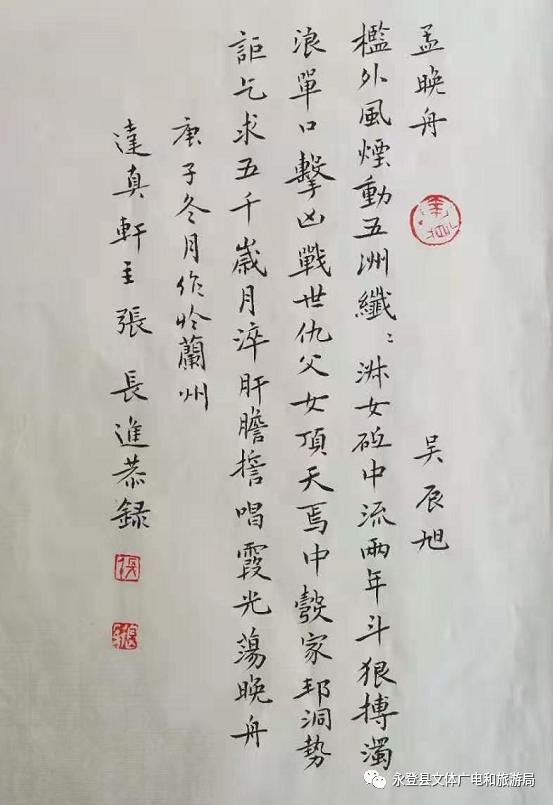 孟晚舟 吴辰旭
檻外風煙動五洲纖〻淑女砥中流兩年斗狠搏濁
浪單口擊凶戰世仇父女頂天焉中彀家邦洞勢
詎乞求五千歲月淬肝膽擔唱霞光蕩晚舟
庚子冬月作於蘭州
達真軒主張長進恭録
永登县文体广电和旅游局